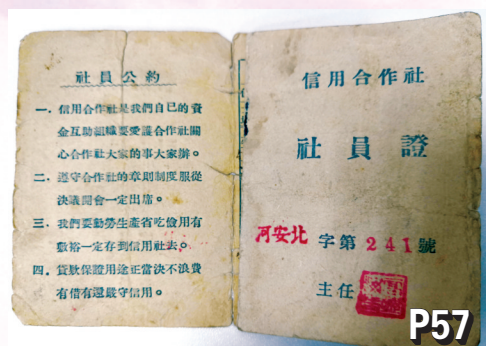 社員公約
一．信用合作社是我們自已的資
金互助組織要愛護合作社關
心合作社大家的事大家辦。
二．遵守合作社的章則制度服從
決議開會一定出席。
三．我們要勤勞生產省吃儉用有
餘裕一定存到信用社去。
四．貸款保證用途正當決不浪費
有借有還嚴守信用。
信用合作社
社員證
河安北 字第 241 號
主任
P57